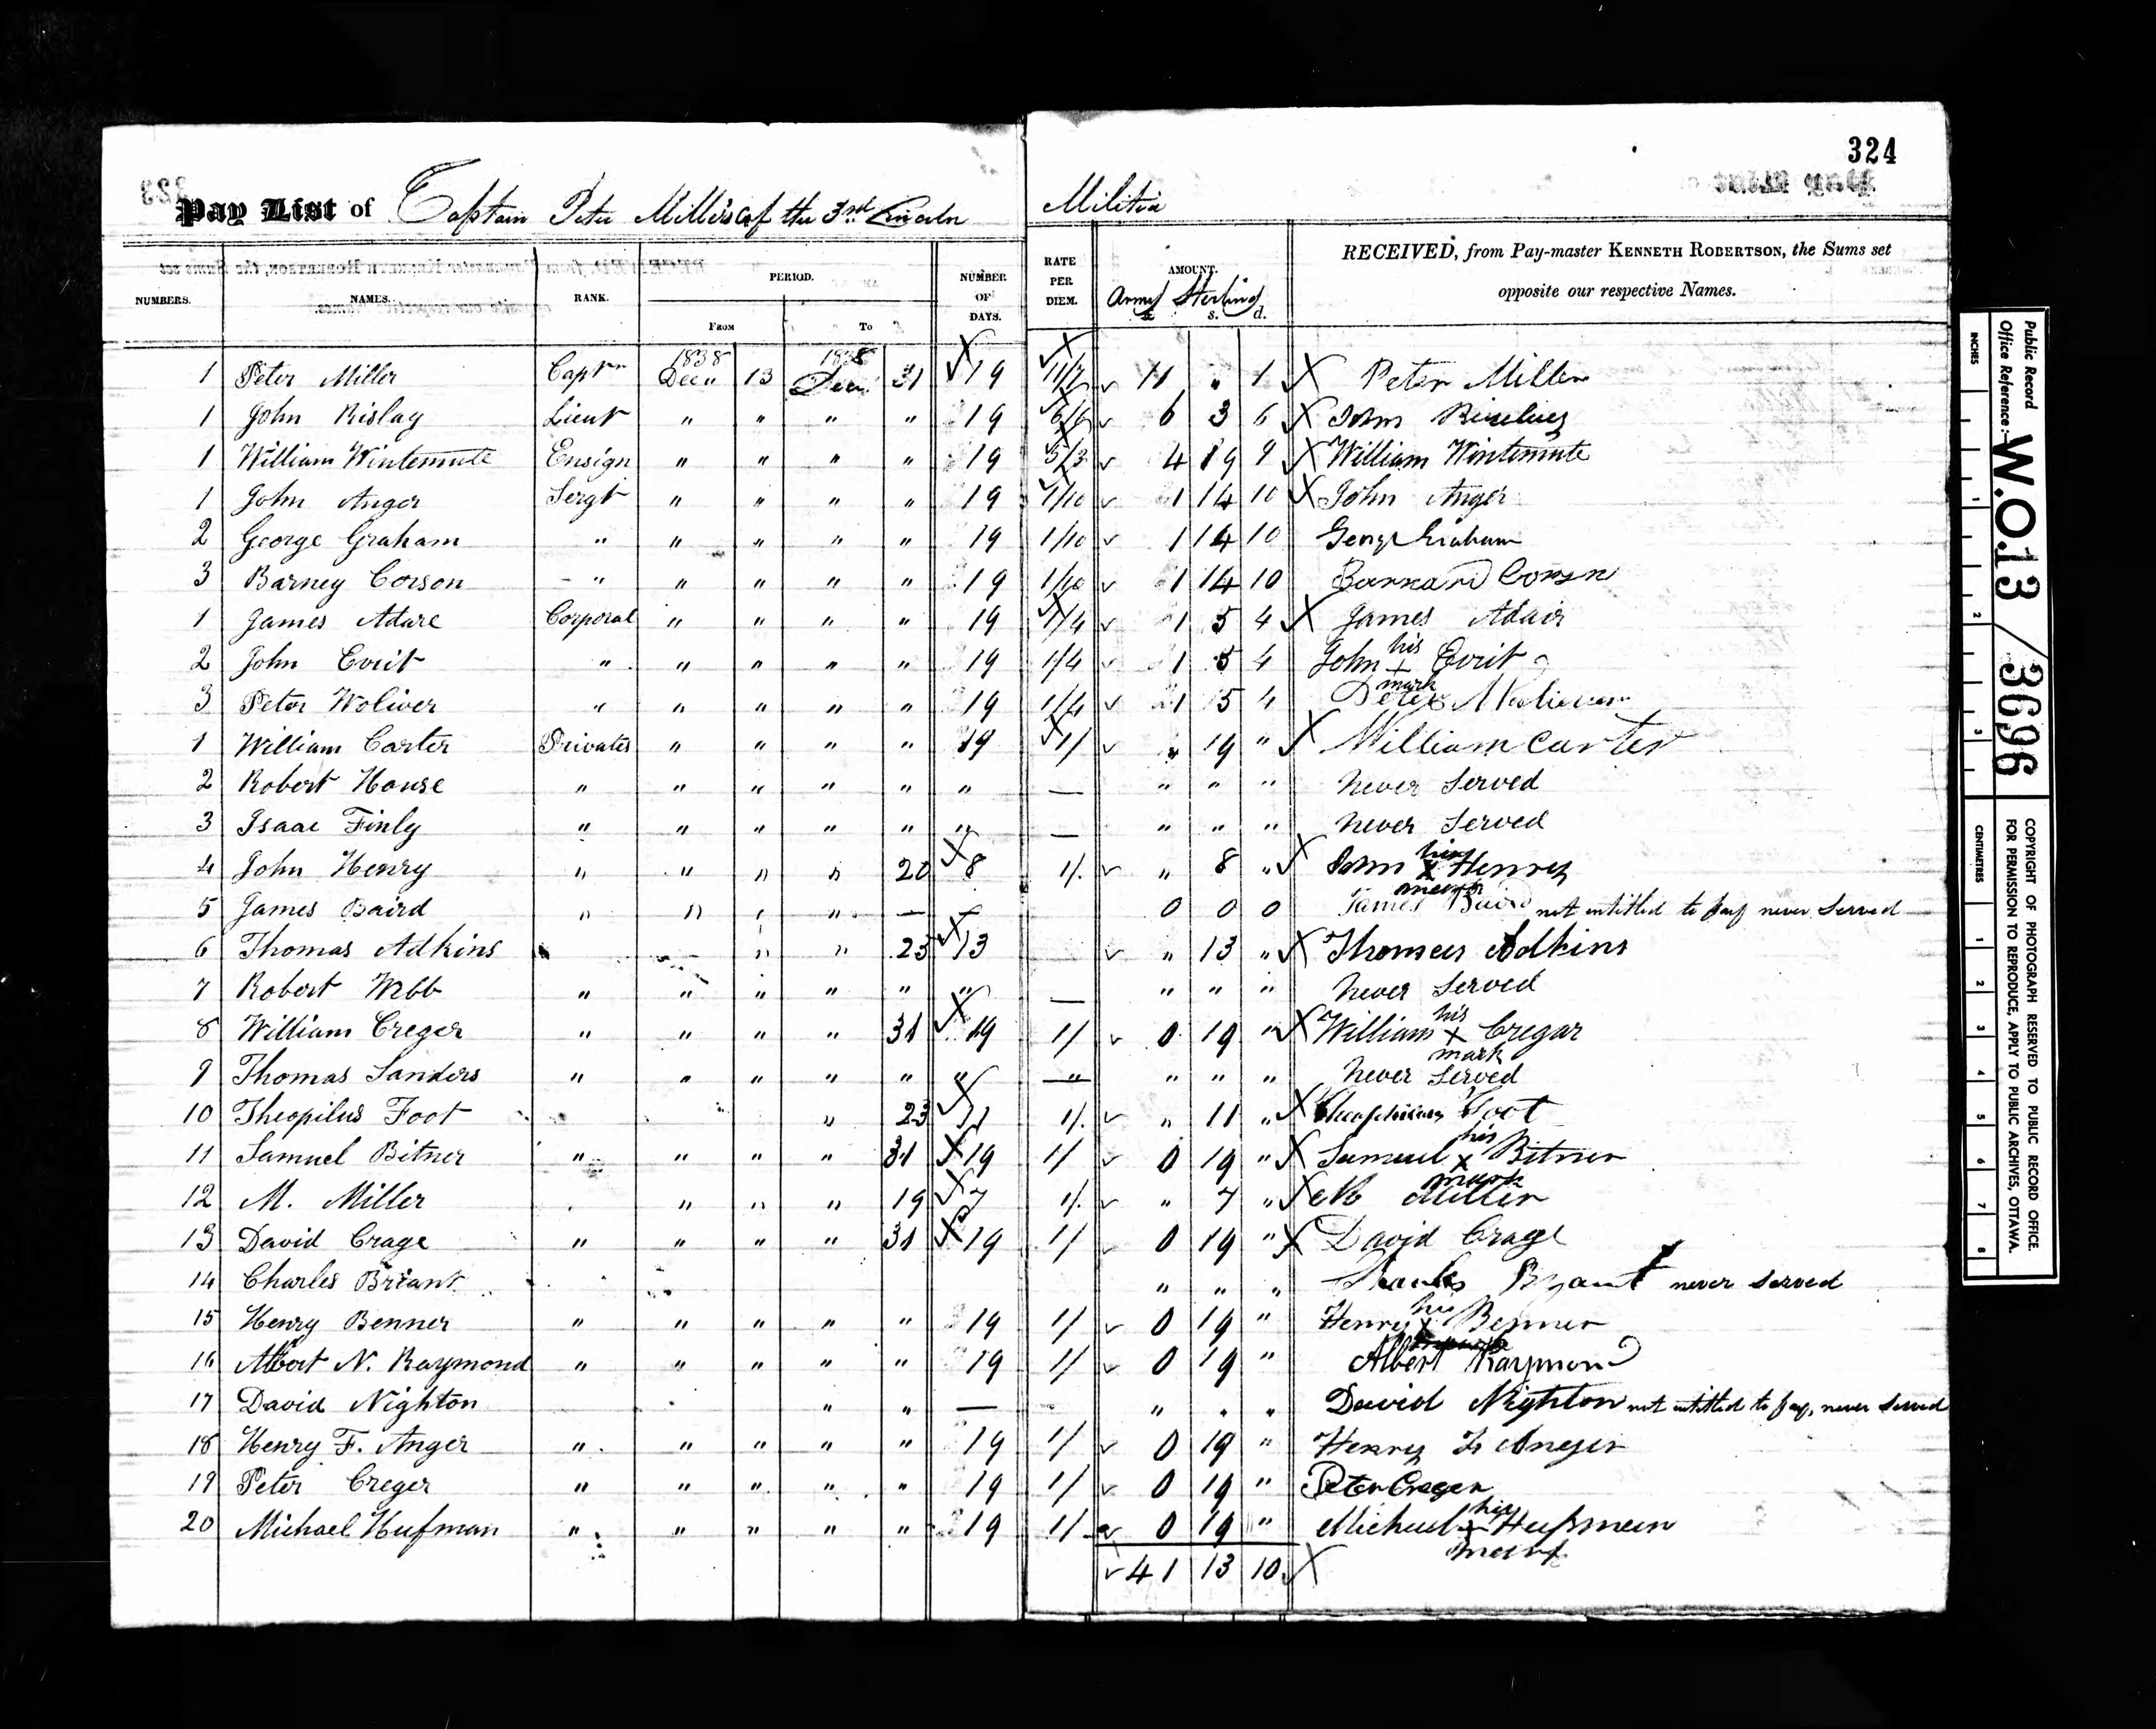 324
Pay List of Captain Peter Miller's of the 3rd Lincoln Militia
NUMBERS. NAMES. RANK. PERIOD. NUMBER OF DAYS. RATE PER DIEM. AMOUNT. RECEIVED, from Pay-master KENNETH ROBERTSON, the Sums set
Army Sterling opposite our respective Names.
FROM TO £ s. d.
1838 1838
1 Peter Miller Captn Decr 13 Decr 31 19 11/7 11 " 1 Peter Miller
1 John Rislay Lieut " " " " 19 6/6 6 3 6 John
1 William Wintemute Ensign " " " " 19 5/3 4 19 9 William Wintemute
1 John Anger Sergt " " " " 19 1/10 1 14 10 John Anger
2 George Graham " " " " " 19 1/10 1 14 10 George Graham
3 Barney Corson " " " " " 19 1/10 1 14 10 Barnard Corson
1 James Adare Corporal " " " " 19 1/4 1 5 4 James Adair
2 John Evrit " " " " " 19 1/4 1 5 4 John his + mark Evrit
3 Peter Woliver " " " " " 19 1/4 1 5 4 Peter
1 William Carter Privates " " " " 19 1/ " 19 " William Carter
2 Robert House " " " " " " — " " " Never Served
3 Isaac Finly " " " " " " — " " " Never Served
4 John Henry " " " " 20 8 1/. " 8 " John his x mark Henry
5 James Baird " " " " — — 0 0 0 James Baird not intitled to pay never served
6 Thomas Adkins " " 23 13 " 13 " Thomas Adkins
7 Robert Webb " " " " " " — " " " Never Served
8 William Creger " " " " 31 19 1/ 0 19 " William his x mark Cregar
9 Thomas Sanders " " " " " " — " " " Never Served
10 Theopilus Foot " 23 11 1/. " 11 " Foot
11 Samuel Bitner " " " " 31 19 1/ 0 19 " Samuel his x mark Bitner
12 M. Miller " " " 19 7 1/. " 7 " M Miller
13 David Crage " " " " 31 19 1/ 0 19 " David Crage
14 Charles Briant " " " Charles Bryant never served
15 Henry Benner " " " " " 19 1/ 0 19 " Henry his x Benner
16 Albert N. Raymond " " " " " 19 1/ 0 19 " Albert Raymond
17 David Nighton " " — " " " David Nighton not intitled to pay, never served
18 Henry F. Anger " " " " " 19 1/ 0 19 " Henry F Anger
19 Peter Creger " " " " " 19 1/ 0 19 " Peter Creger
20 Michael Hufman " " " " " 19 1/ 0 19 " Michael his + mark Hufsman
41 13 10
Public Record Office Reference:- W.O.13/3696
INCHES 1 2 3
CENTIMETRES 1 2 3 4 5 6 7 8
COPYRIGHT OF PHOTOGRAPH RESERVED TO PUBLIC RECORD OFFICE.
FOR PERMISSION TO REPRODUCE, APPLY TO PUBLIC ARCHIVES, OTTAWA.